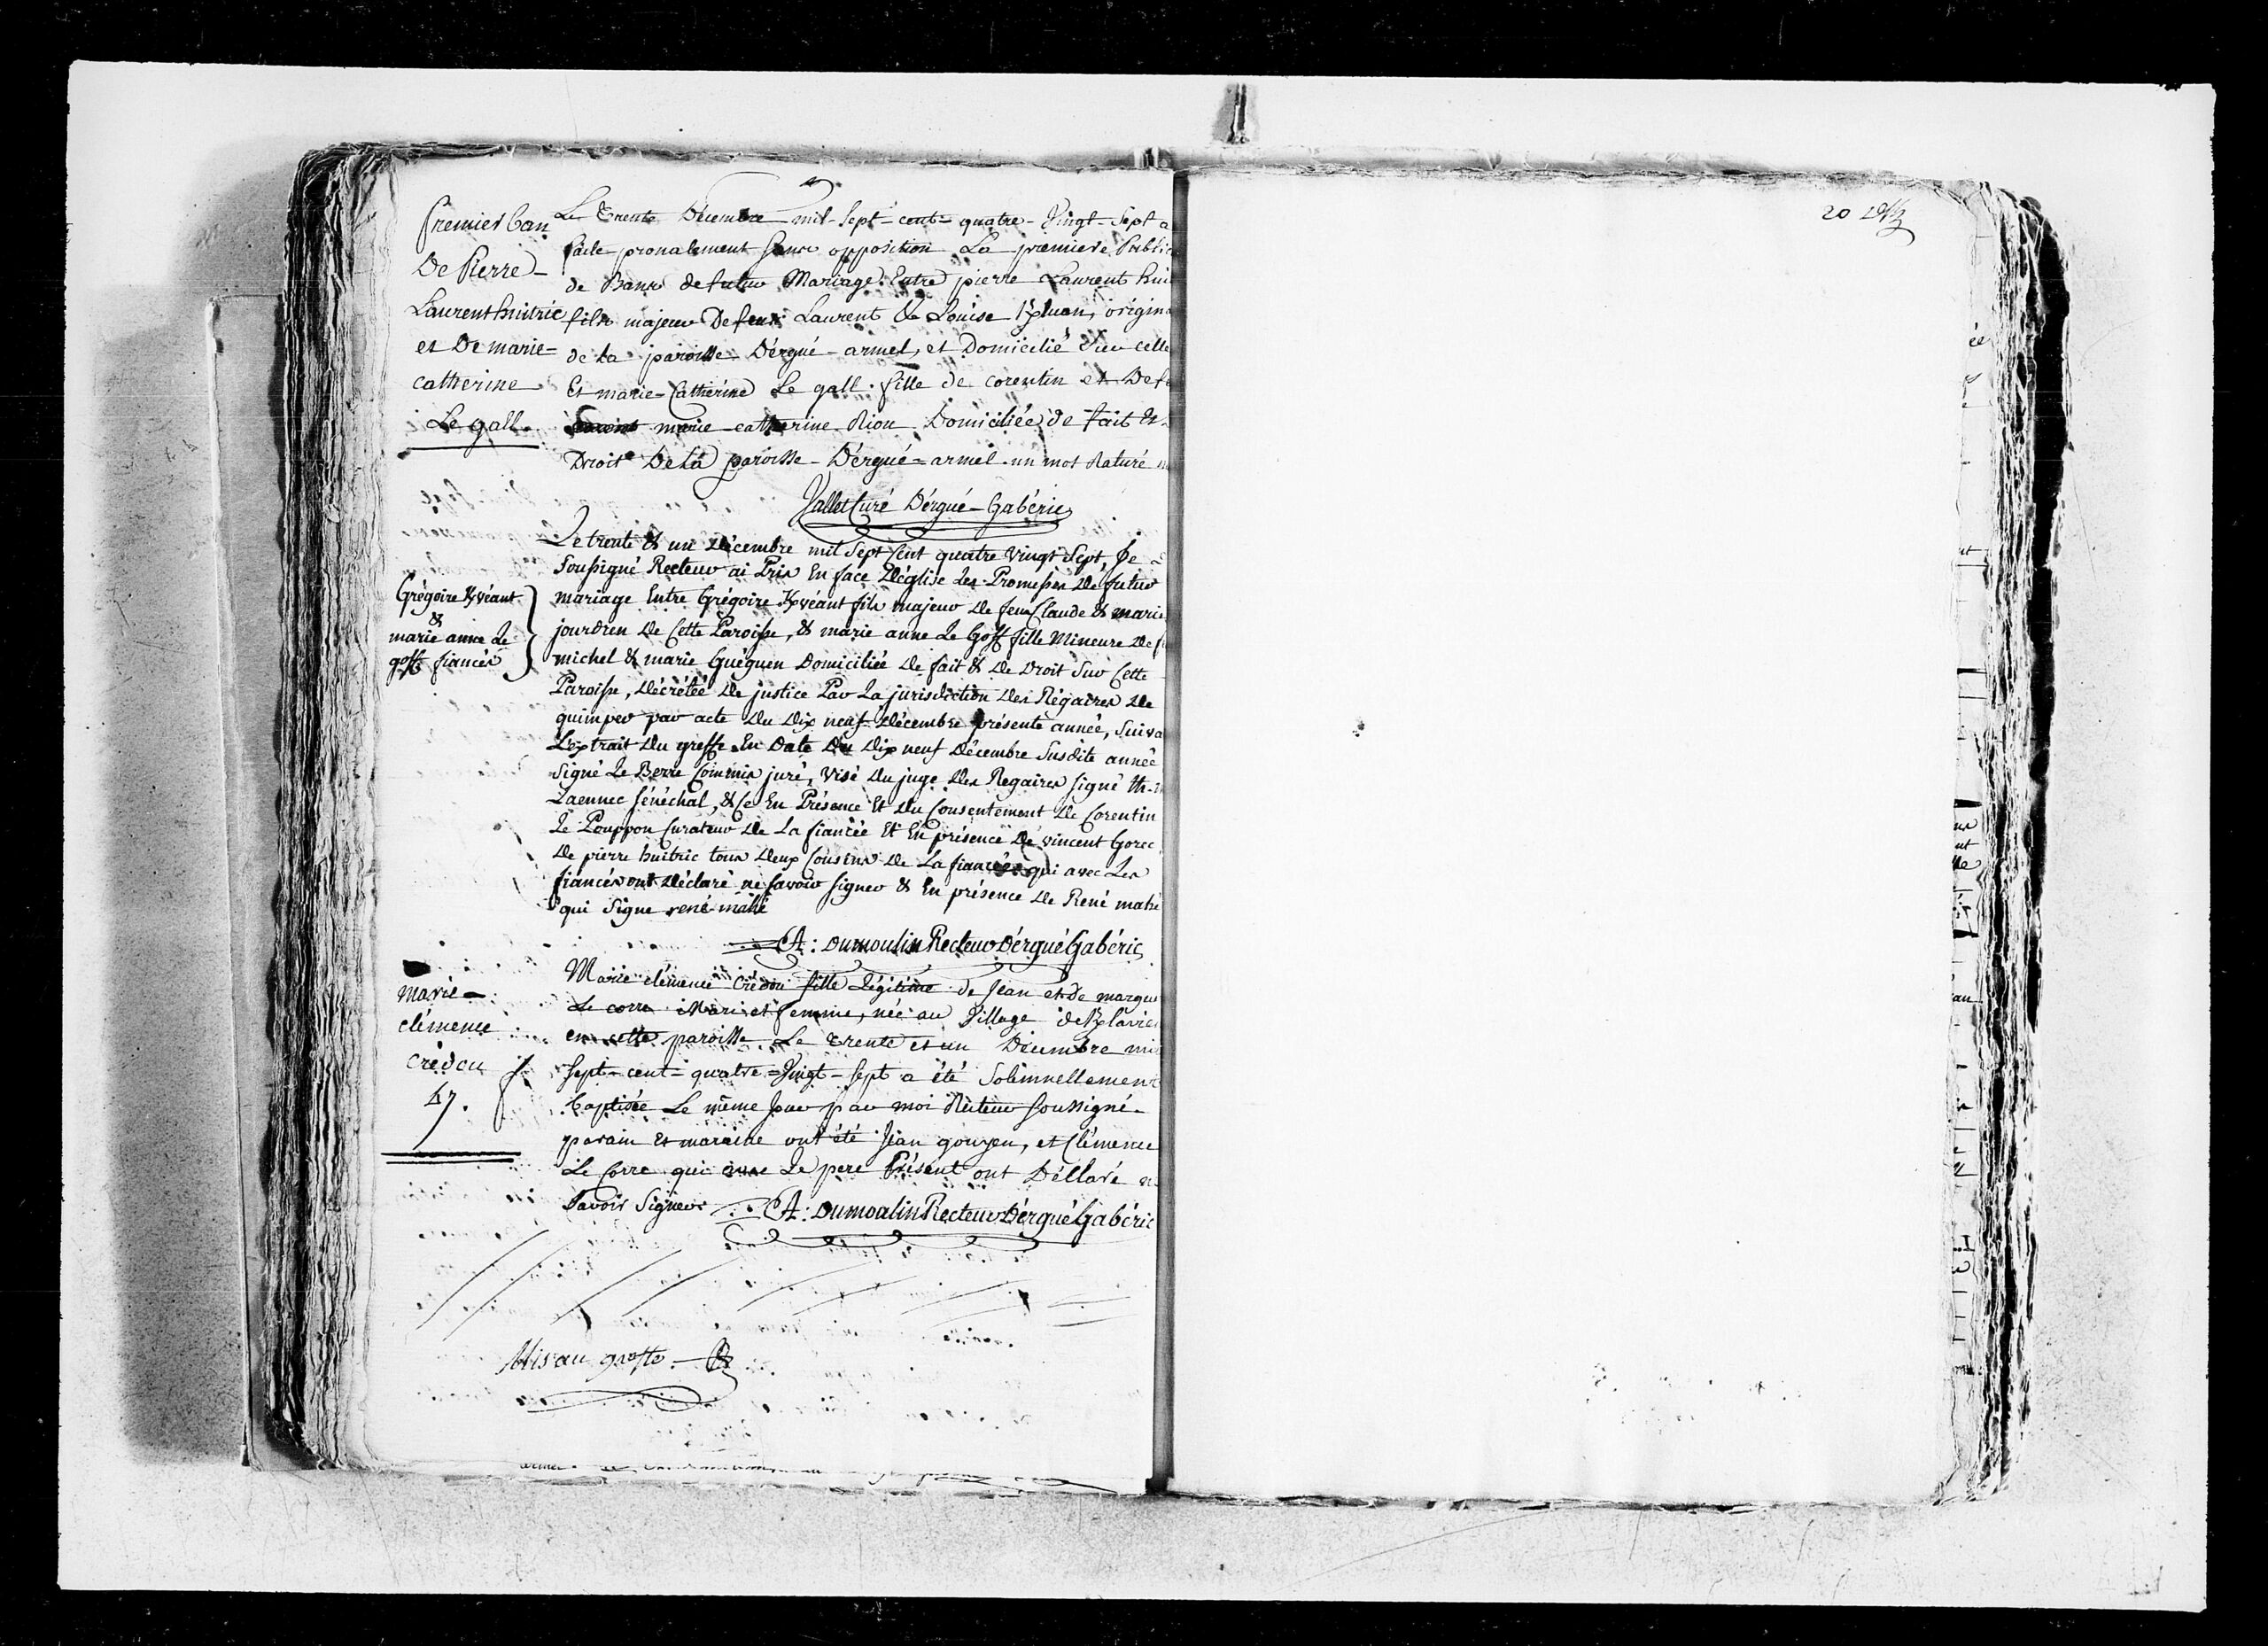 Premier ban
De Pierre-
Laurent huitric
et De marie=
catherine
Le gall.
Le trente Décembre mil-sept-cent-quatre-Vingt-Sept a
faite pronalement sans opposition La premiere Public
de Bans de futur Mariage Entre pierre Laurent hui
fils majeur De feux Laurent & Louise Kluan, origina
de la paroisse D'ergué-armel, et Domicilié Sur celle
Et marie-Catherine Le gall fille de corentin et De fe
marie-catherine Riou Domiciliée de fait et
Droit De la paroisse-D'ergué=armel. un mot Raturé
Vallet Curé D'ergué-Gabéric
Grégoire Kvéant
&
marie anne Le
goff fiancés
Le trente & un Décembre mil Sept Cent quatre vingt Sept, Je
Soussigné Recteur ai Pris En face D'église Les Promesses De futur
mariage Entre Grégoire Kvéant fils majeur De feux Claude & marie
jourdren De Cette Paroisse, & marie anne Le Goff fille Mineure De f
michel & marie Guéguen Domiciliée De fait & De Droit Sur Cette
Paroisse, Décrétée De justice Par La jurisdiction Des Régaires De
quimper par acte Du Dix neuf Décembre présente année, Suiva
L'extrait Du greffe En Date Du Dix neuf Décembre Susdite année
Signé Le Berre Commis juré, visé Du juge Des Regaires signé th-
Laennec Sénéchal, & Ce En Présence Et Du Consentement De Corentin
Le Pouppon Curateur De La fiancée Et En présence De vincent Gorec
De pierre huitric tous Deux Cousins De La fiancée qui avec Les
fiancés ont Déclaré ne savoir signer & En présence De René mahé
qui Signe rené mahé
A: Dumoulin Recteur D'ergué Gabéric
Marie-
clémence
crédou
47.
Marie clémence Crédou fille Légitime de Jean et De margue
Le corre Mari et femme, née au Village de Klavie
en cette paroisse Le trente et un Décembre mi
Sept-cent-quatre-Vingt-Sept a été Solemnellement
Baptisée Le même jour par moi Recteur soussigné
parain Et maraine ont été Jean gouzen, et Clémence
Le Corre qui avec Le pere Présent ont Déclaré n
Savoir Signer A: Dumoulin Recteur D'ergué Gabéric
Mis au greffe
20